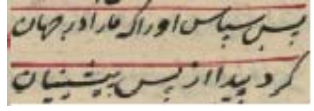 پس سپاس اورا که مارا در جهان
کرد پیدا از پس پیشینیان